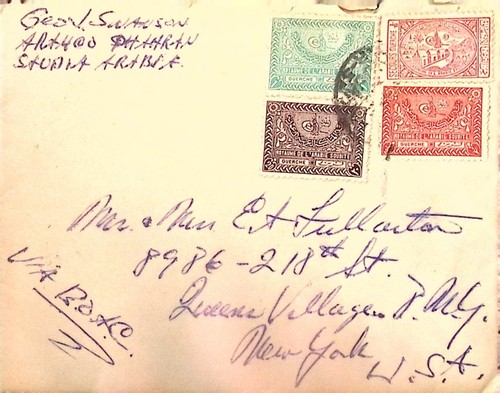 Geo. V. Swanson
ARAMCO DHAHRAN
SAUDIA ARABIA
ROYAUME DE L'ARABIE SOUDITE
GUERCHE
ROYAUME DE L'ARABIE SOUDITE
GUERCHE
ROYAUME DE L'ARABIE SOUDITE
GUERCHE
Mr. & Mrs E A Fullarton
8986-218th St.
Queens Village P. N.Y.
New York
U.S.A.
VIA B.O.A.C.